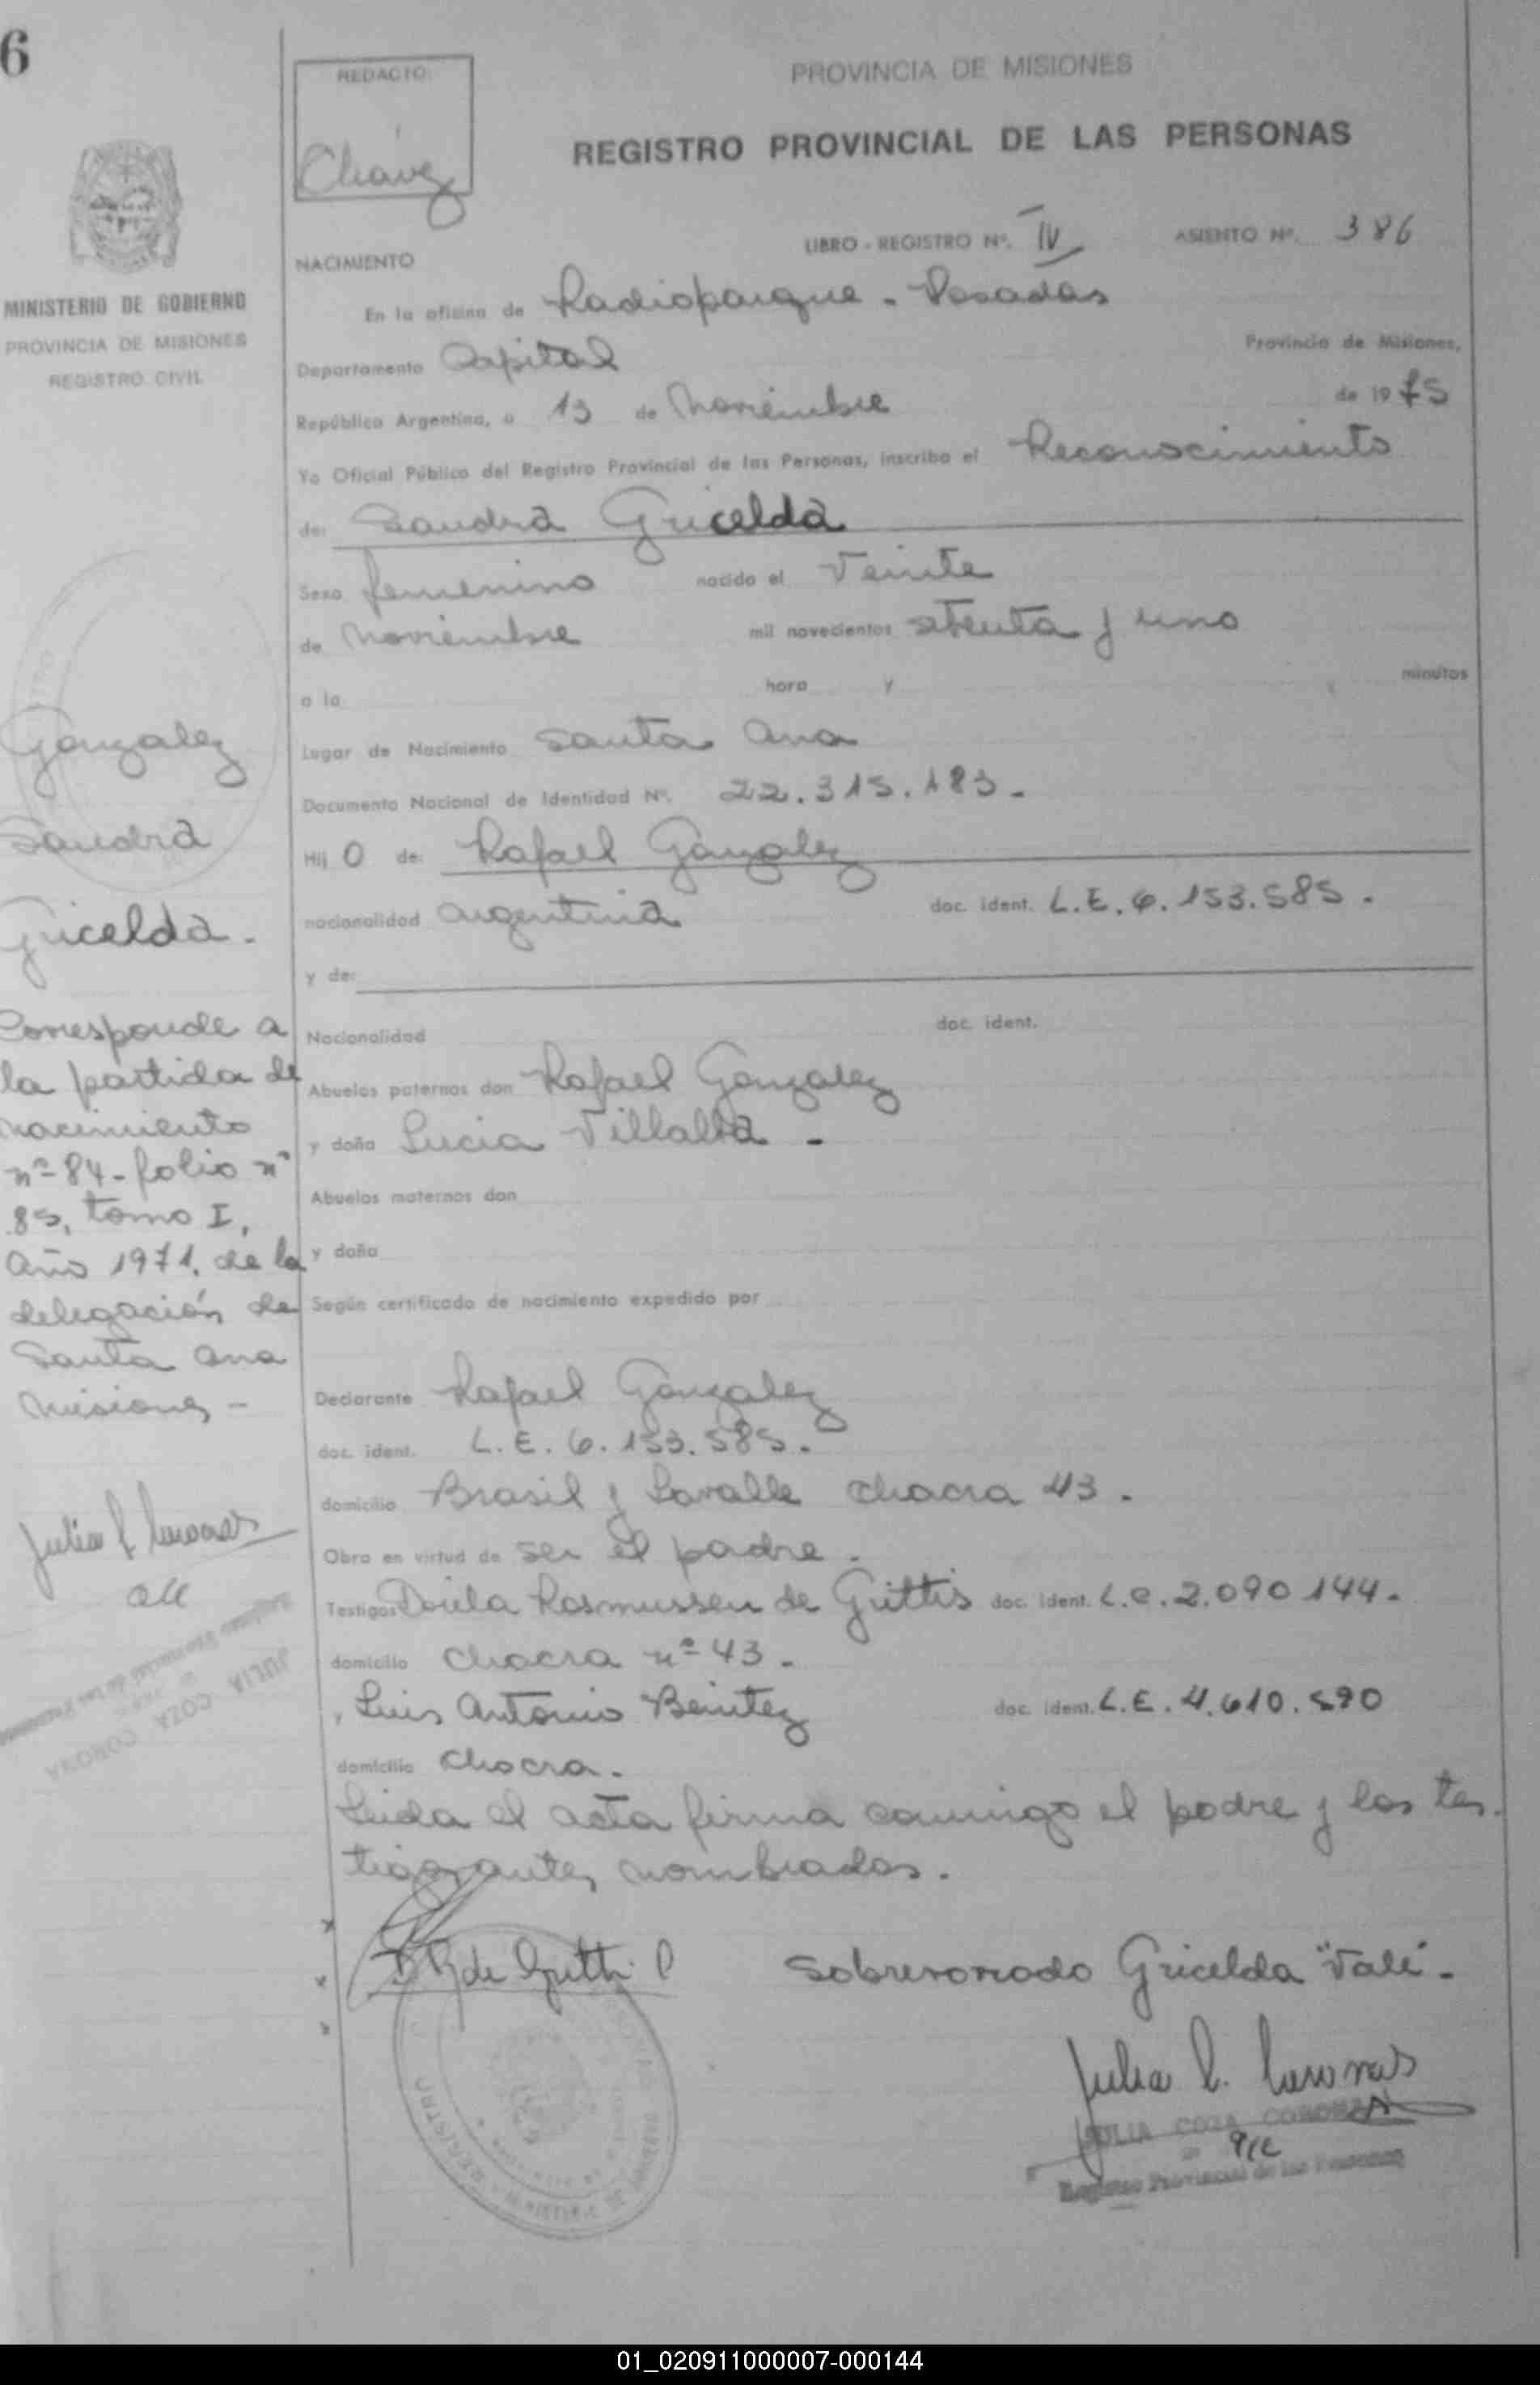 6
REDACTO:
Chavez
PROVINCIA DE MISIONES
REGISTRO PROVINCIAL DE LAS PERSONAS
LIBRO - REGISTRO Nº. IV ASIENTO Nº. 386
NACIMIENTO
MINISTERIO DE GOBIERNO
PROVINCIA DE MISIONES
REGISTRO CIVIL
En la oficina de Radioparque - Posadas
Departamento Capital Provincia de Misiones,
República Argentina, a 13 de Noviembre de 1975
Yo Oficial Público del Registro Provincial de las Personas, inscribo el Reconoscimiento
de: Sandra Gricelda
Sexo femenino nacido el Veinte
de Noviembre mil novecientos setenta y uno
a la hora y minutos
Lugar de Nacimiento Santa Ana
Documento Nacional de Identidad Nº. 22.315.183.-
Hij O de: Rafael Gonzalez
nacionalidad argentina doc. ident. L.E. 6.153.585.
y de:
Nacionalidad doc. ident.
Abuelos paternos don Rafael Gonzalez
y doña Lucia Villalba -
Abuelos maternos don
y doña
Según certificado de nacimiento expedido por
Declarante Rafael Gonzalez
doc. ident. L.E. 6.153.585.
domicilio Brasil y Lavalle chacra 43.
Obra en virtud de ser el padre.
Testigos Rasmussen de Grittis doc. ident. L.C. 2.090 144.
domicilio Chacra nº 43.
y Luis Antonio Benitez doc. ident. L.E. 4.610.590
domicilio Chacra.
Leida el acta firma conmigo el padre y los tes
tigos nombrados.
Gonzalez
Sandra
Gricelda.
Corresponde a
la partida de
nacimiento
nº 84 - folio nº
85, tomo I,
Año 1971. de la
delegación de
Santa Ana
Misiones -
JULIA COZA CORONA
Registro Provincial de las Personas
Sobrerroriado Gricelda "Vale" -
JULIA COZA CORONA
Registro Provincial de las Personas
01_020911000007-000144